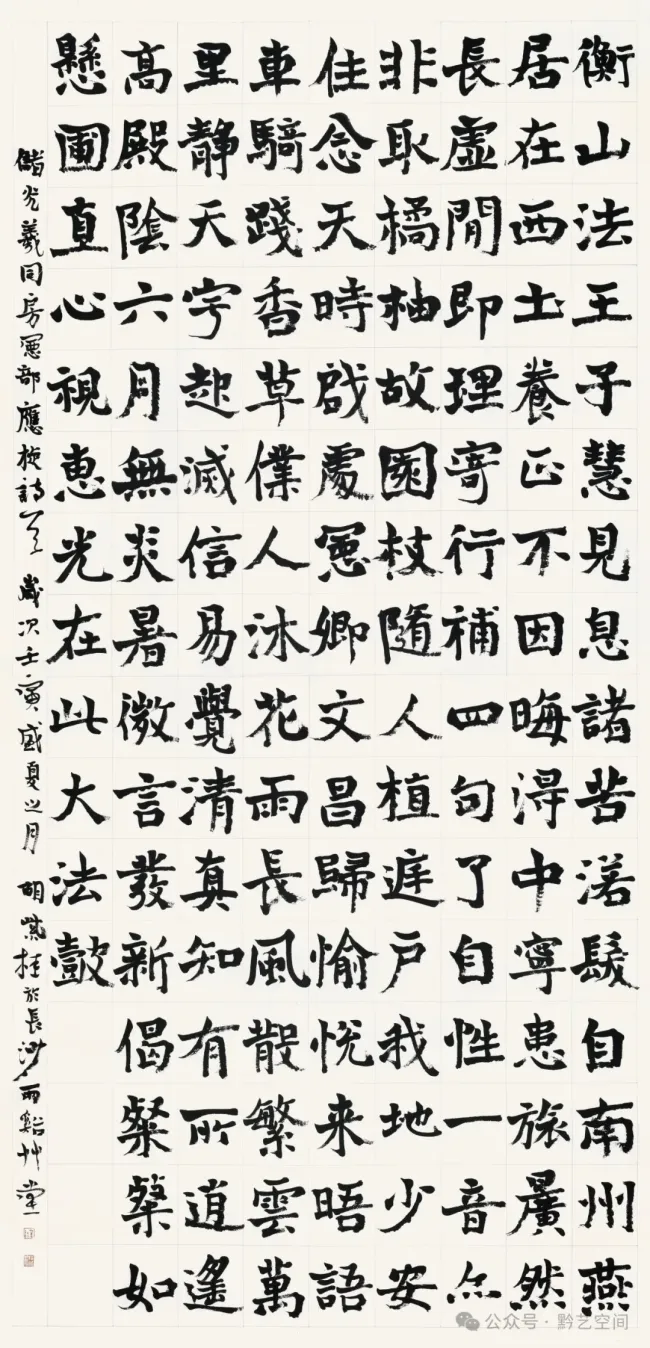 衡山法王子慧見息諸苦落髮自南州燕
居在西土養正不因晦淂中寧患旅曠然
長虛閒即理寄行補四句了自性一音亦
非取橘柚故園枝隨人植庭戶我地少安
住念天時啟處憲卿文昌歸愉悅来晤語
車騎踐香草僕人沐花雨長風散繁雲萬
里靜天宇起滅信易覺清真知有所逍遙
高殿陰六月無炎暑微言發新偈粲粲如
懸圃直心視惠光在此大法鼓
儲光羲同房憲部應旋詩一首 歲次壬寅盛夏之月 胡紫桂於長沙雨谿艸堂
公众号·黔艺空间